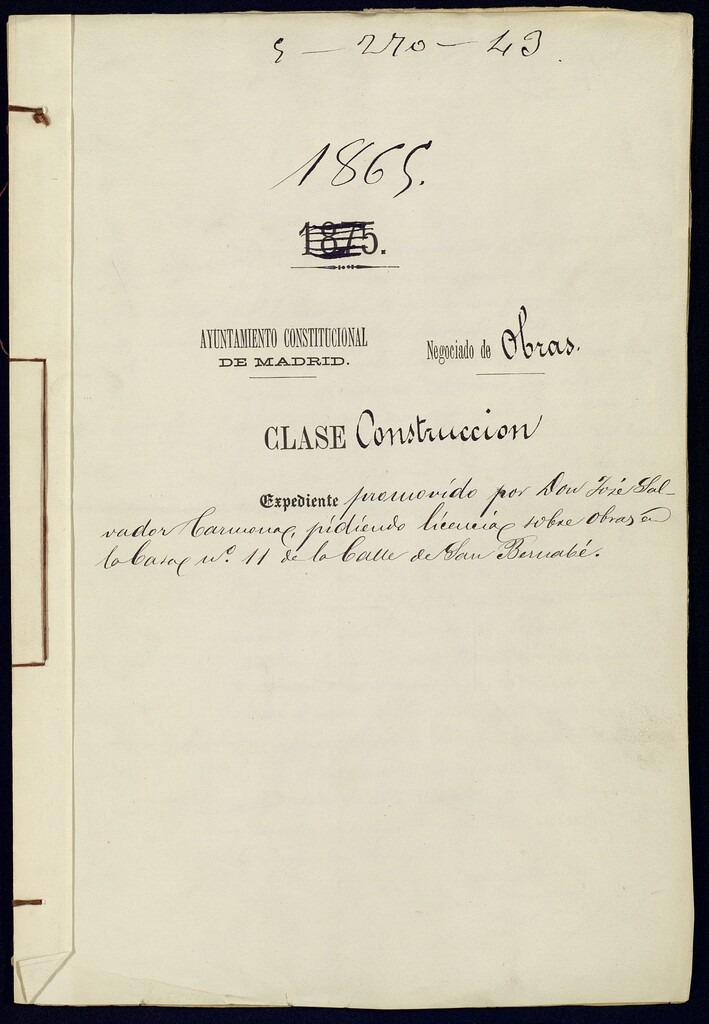 5 - 270 - 43.
1865.
1875.
AYUNTAMIENTO CONSTITUCIONAL
DE MADRID.
Negociado de Obras.
CLASE Construccion
Expediente promovido por Don José Sal-
vador Carmona, pidiendo licencia sobre obras en
la Casa nº. 11 de la Calle de San Bernabé.